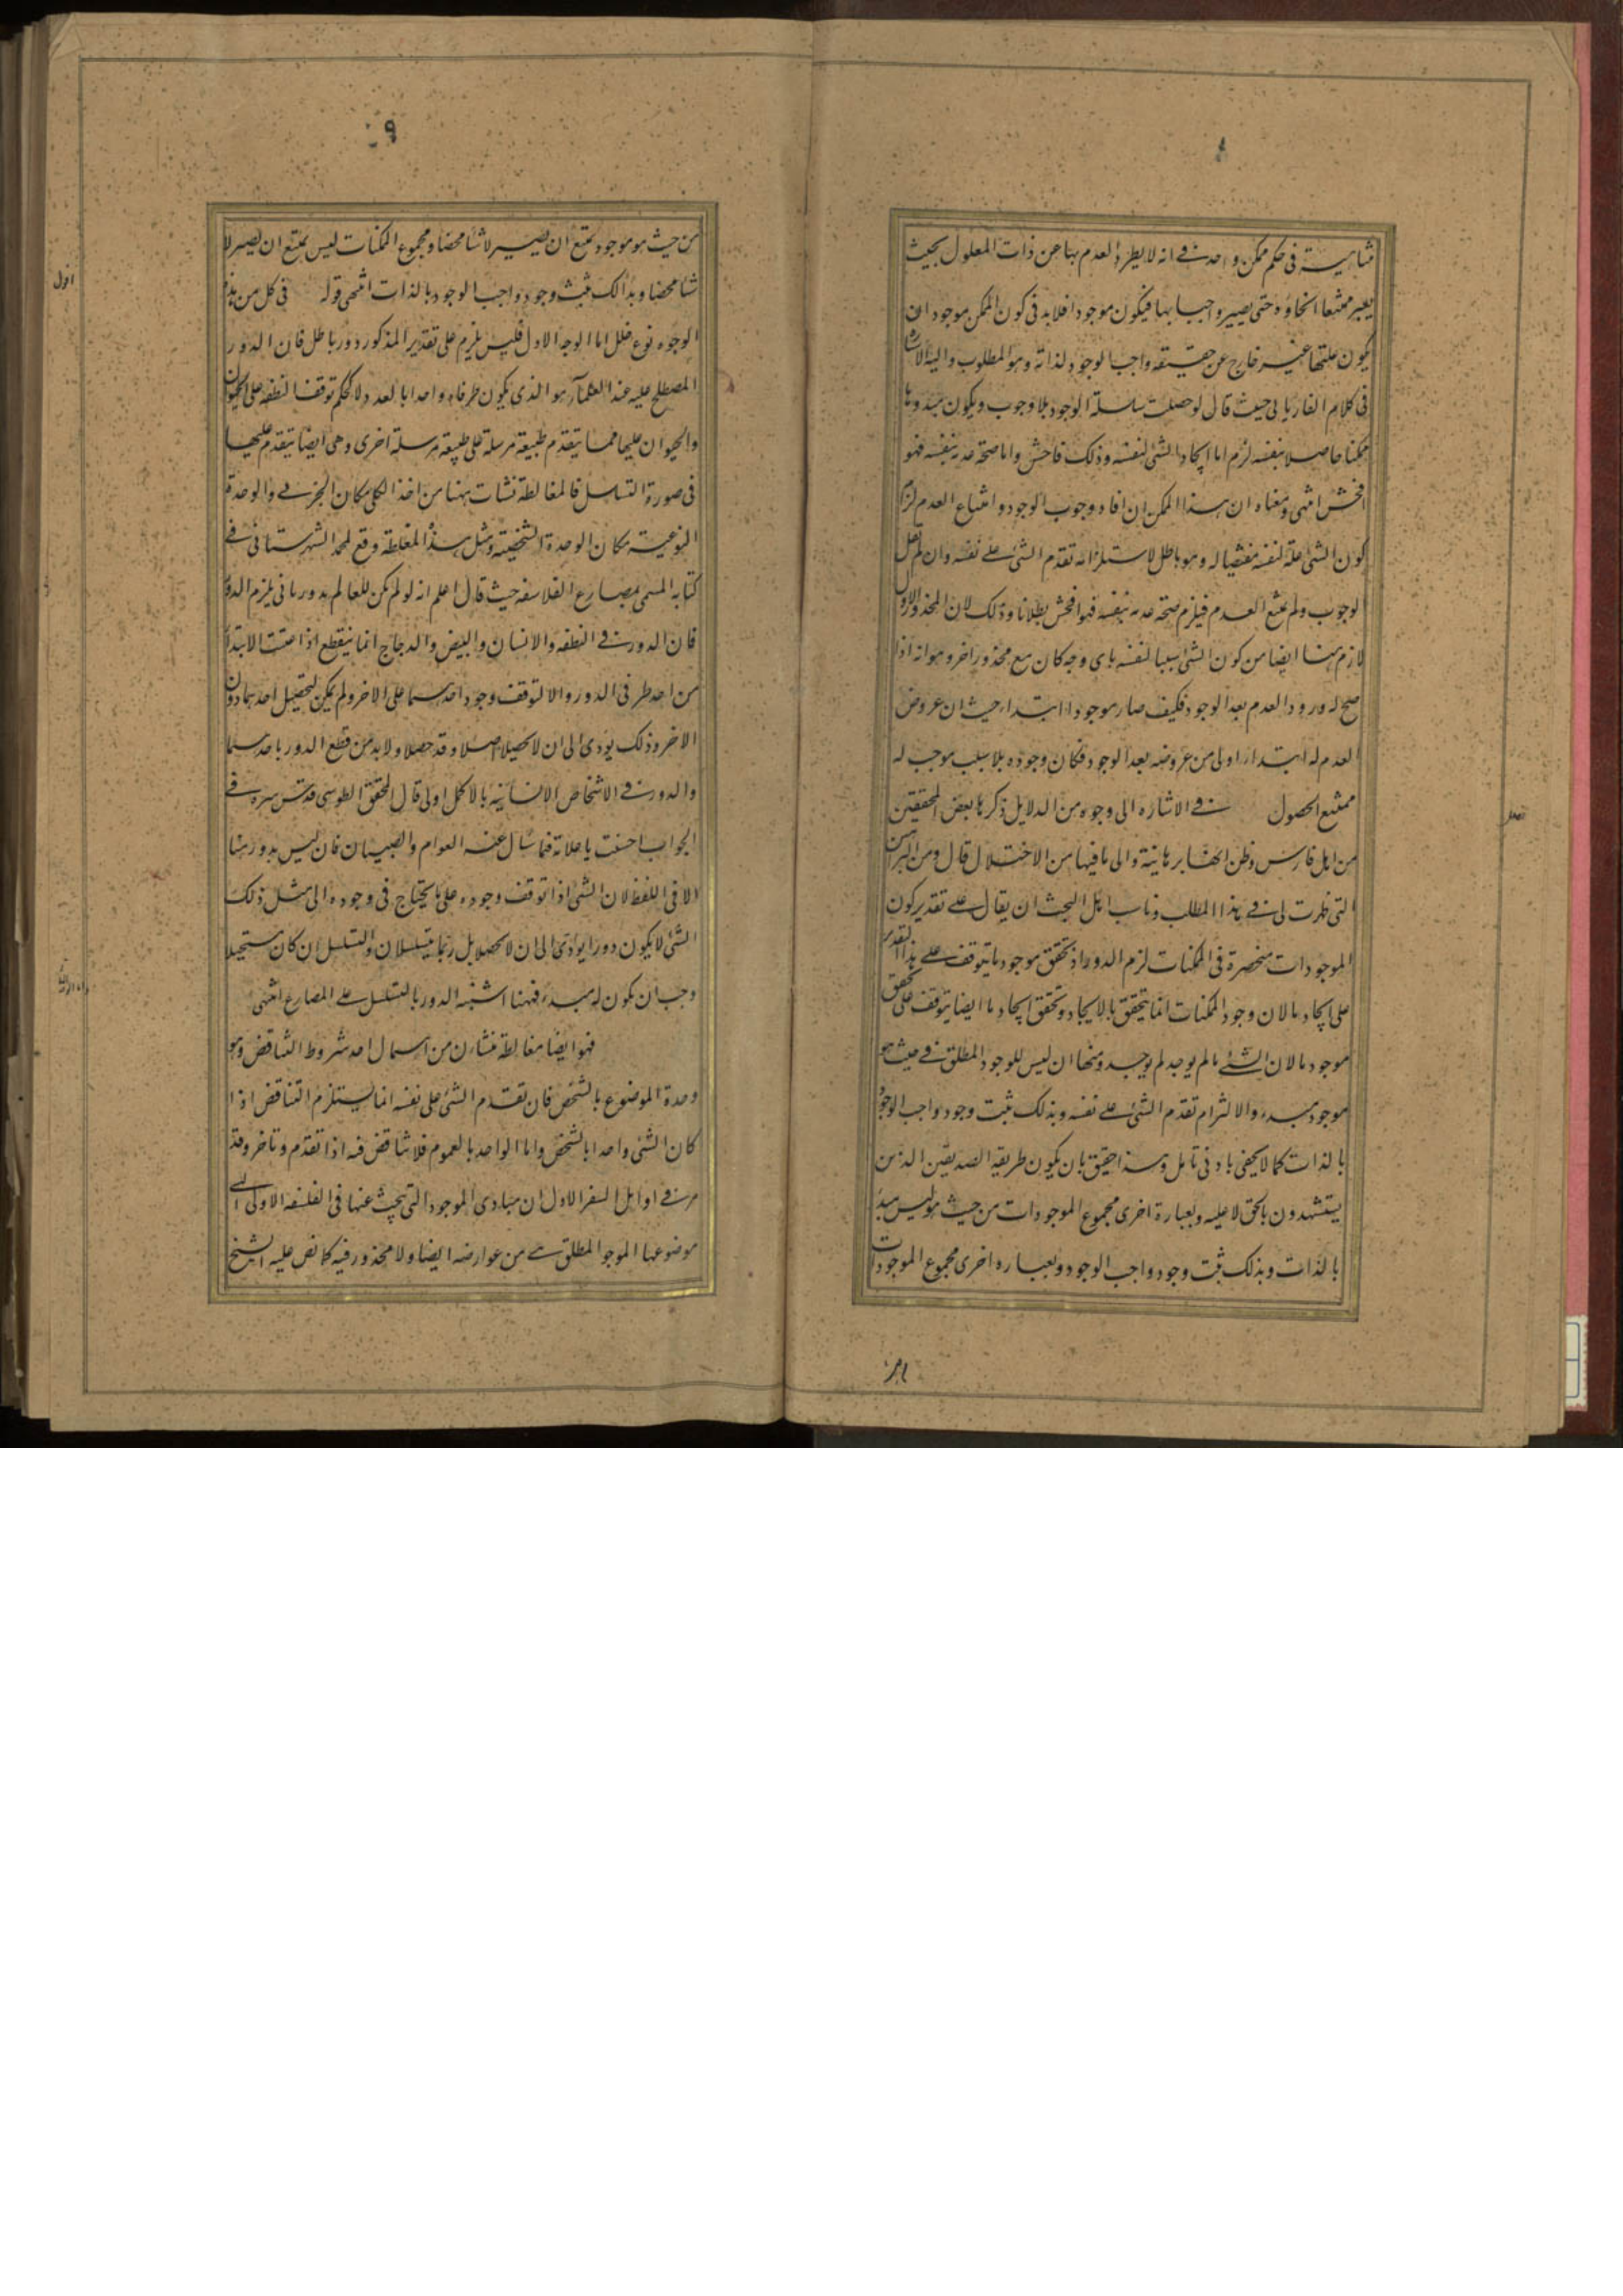 ۸
متناهية فی حکم ممکن واحد فے انه لا يطرء العدم بها عن ذات المعلول بحيث
يصير ممتنعا انحاؤه حتى يصير واجبا بها فيكون موجودا فلابد فی كون الممكن موجودا ن
يكون علتها غير خارج عن حقيقة واجب الوجود لذاته وهو المطلوب واليه الاشا
فی كلام الفارابی حيث قال لو حصلت سلسلة الوجود بلا وجوب ويكون مبدوها
ممكنا حاصلا بنفسه لزم اما ايجاد الشئ لنفسه وذلك فاحش واما صحة عدمه بنفسه فهو
افحش انتهى ومعناه ان هذا الممكن ان افاد وجوب الوجود وامتناع العدم لزم
كون الشئ علة لنفسه مقتضيا له وهو باطل لاستلزامه تقدم الشئ علے نفسه وان لم يحصل
الوجوب ولم يمتنع العدم فيلزم صحة عدمه بنفسه فهو افحش بطلانا وذلك لان المحذور الاول
لازم هنا ايضا من كون الشئ سببا لنفسه بای وجه كان مع محذور اخر وهو انه اذا
صح له ورود العدم بعد الوجود فكيف صار موجودا ابتداء حيث ان عروض
العدم له ابتداء اولى من عروضه بعد الوجود فكان وجوده بلا سبب موجب له
ممتنع الحصول فے الاشاره الى وجوه من الدلايل ذكرها بعض المحققين
من اهل فارس وظن انها برهانية والى ما فيها من الاختلال قال ومن البراهين
التى ظهرت لى فے هذا المطلب وناسب اهل البحث ان يقال علے تقدير كون
الموجودات منحصرة فی الممكنات لزم الدور اذ تحقق موجود ما يتوقف علے هذا التقدير
على ايجاد ما لان وجود الممكنات انما يتحقق بالايجاد وتحقق ايجاد ما ايضا يتوقف على تحقق
موجود ما لان الشئے ما لم يوجد لم يوجد ومنها ان ليس للوجود المطلق فے حيث هو
موجود مبدء والا لزم تقدم الشئ علے نفسه وبذلك ثبت وجود واجب الوجود
بالذات كما لا يخفى بادنى تامل وهذا حقيق بان يكون طريقة الصديقين الذين
يستشهدون بالحق لا عليه وبعبارة اخرى مجموع الموجودات من حيث هو ليس مبدء
بالذات وبذلك ثبت وجود واجب الوجود وبعباره اخرى مجموع الموجودات
فصل
۹
من حيث هو موجود يمتنع ان يصير لا شئا محضا ومجموع الممكنات ليس يمتنع ان يصير لا
شئا محضا وبذالك ثبت وجود واجب الوجود بالذات انتهى قوله فی كل من هذه
الوجوه نوع خلل اما الوجه الاول فليس يلزم على تقدير المذكور دور باطل فان الدور
المصطلح عليه عند العلمآء هو الذی يكون طرفاه واحدا بالعدد لا كحكم توقف النطفه على الحيوان
والحيوان عليها مما يتقدم طبيعة مرسلة على طبيعة مرسلة اخرى وهى ايضا يتقدم عليها
فی صورة التسلسل فالمغالطة نشات ههنا من اخذ الكلى مكان الجزے والوحدة
النوعية مكان الوحدة الشخصية ومثل هذه المغلطة وقع لمحمد الشهرستانی فے
كتابه المسمى بمصارع الفلاسفه حيث قال اعلم انه لو لم يكن للعالم بدو زمانی يلزم الدور
فان الدور فے النطفه والانسان والبيض والدجاج انما ينقطع اذا عينت الابتداء
من احد طرفی الدور والا لتوقف وجود احدهما على الاخر ولم يكن لتحصيل احدهما دون
الاخر وذلك يودی الى ان لا يحصلا اصلا وقد حصلا ولا بد من قطع الدور باحدهما
والدور فے الاشخاص الانسانيه بالاكمل اولى قال المحقق الطوسی قدس سره فے
الجواب احسنت يا علامة فما يسال عنه العوام والصبيان فان ليس بدور هنا
الا فی اللفظ لان الشئ اذا توقف وجوده على ما يحتاج فی وجوده الى مثل ذلك
الشئ لا يكون دورا يودی الى ان لا يحصلا بل ربما يتسلسلان والتسلسل ان كان مستحيلا
وجب ان يكون له مبدء فههنا اشتبه الدور بالتسلسل علے المصارع انتهى
فهو ايضا مغالطة منشاؤن من اهمال احد شروط التناقض وهو
وحدة الموضوع بالشخص فان تقدم الشئ على نفسه انما يستلزم التناقض اذا
كان الشئ واحدا بالشخص واما الواحد بالعموم فلا تناقض فيه اذا تقدم وتاخر وقد
مر فے اوايل السفر الاول ان مبادی الموجود التى يبحث عنها فی الفلسفه الاولى التے
موضوعها الموجو المطلق هے من عوارضه ايضا ولا محذور فيه كما نص عليه الشيخ
اقول